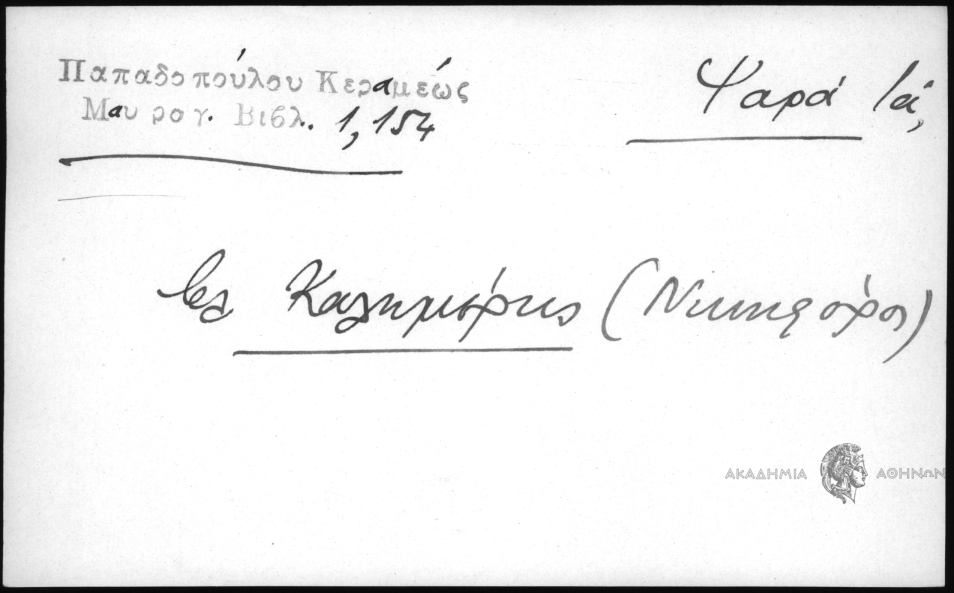 Παπαδοπούλου Κεραμέως
Μαυρογ. Βιβλ. 1, 154
Ψαρά
Καλημέρης (Νικηφόρος)
ΑΚΑΔΗΜΙΑ ΑΘΗΝΩΝ